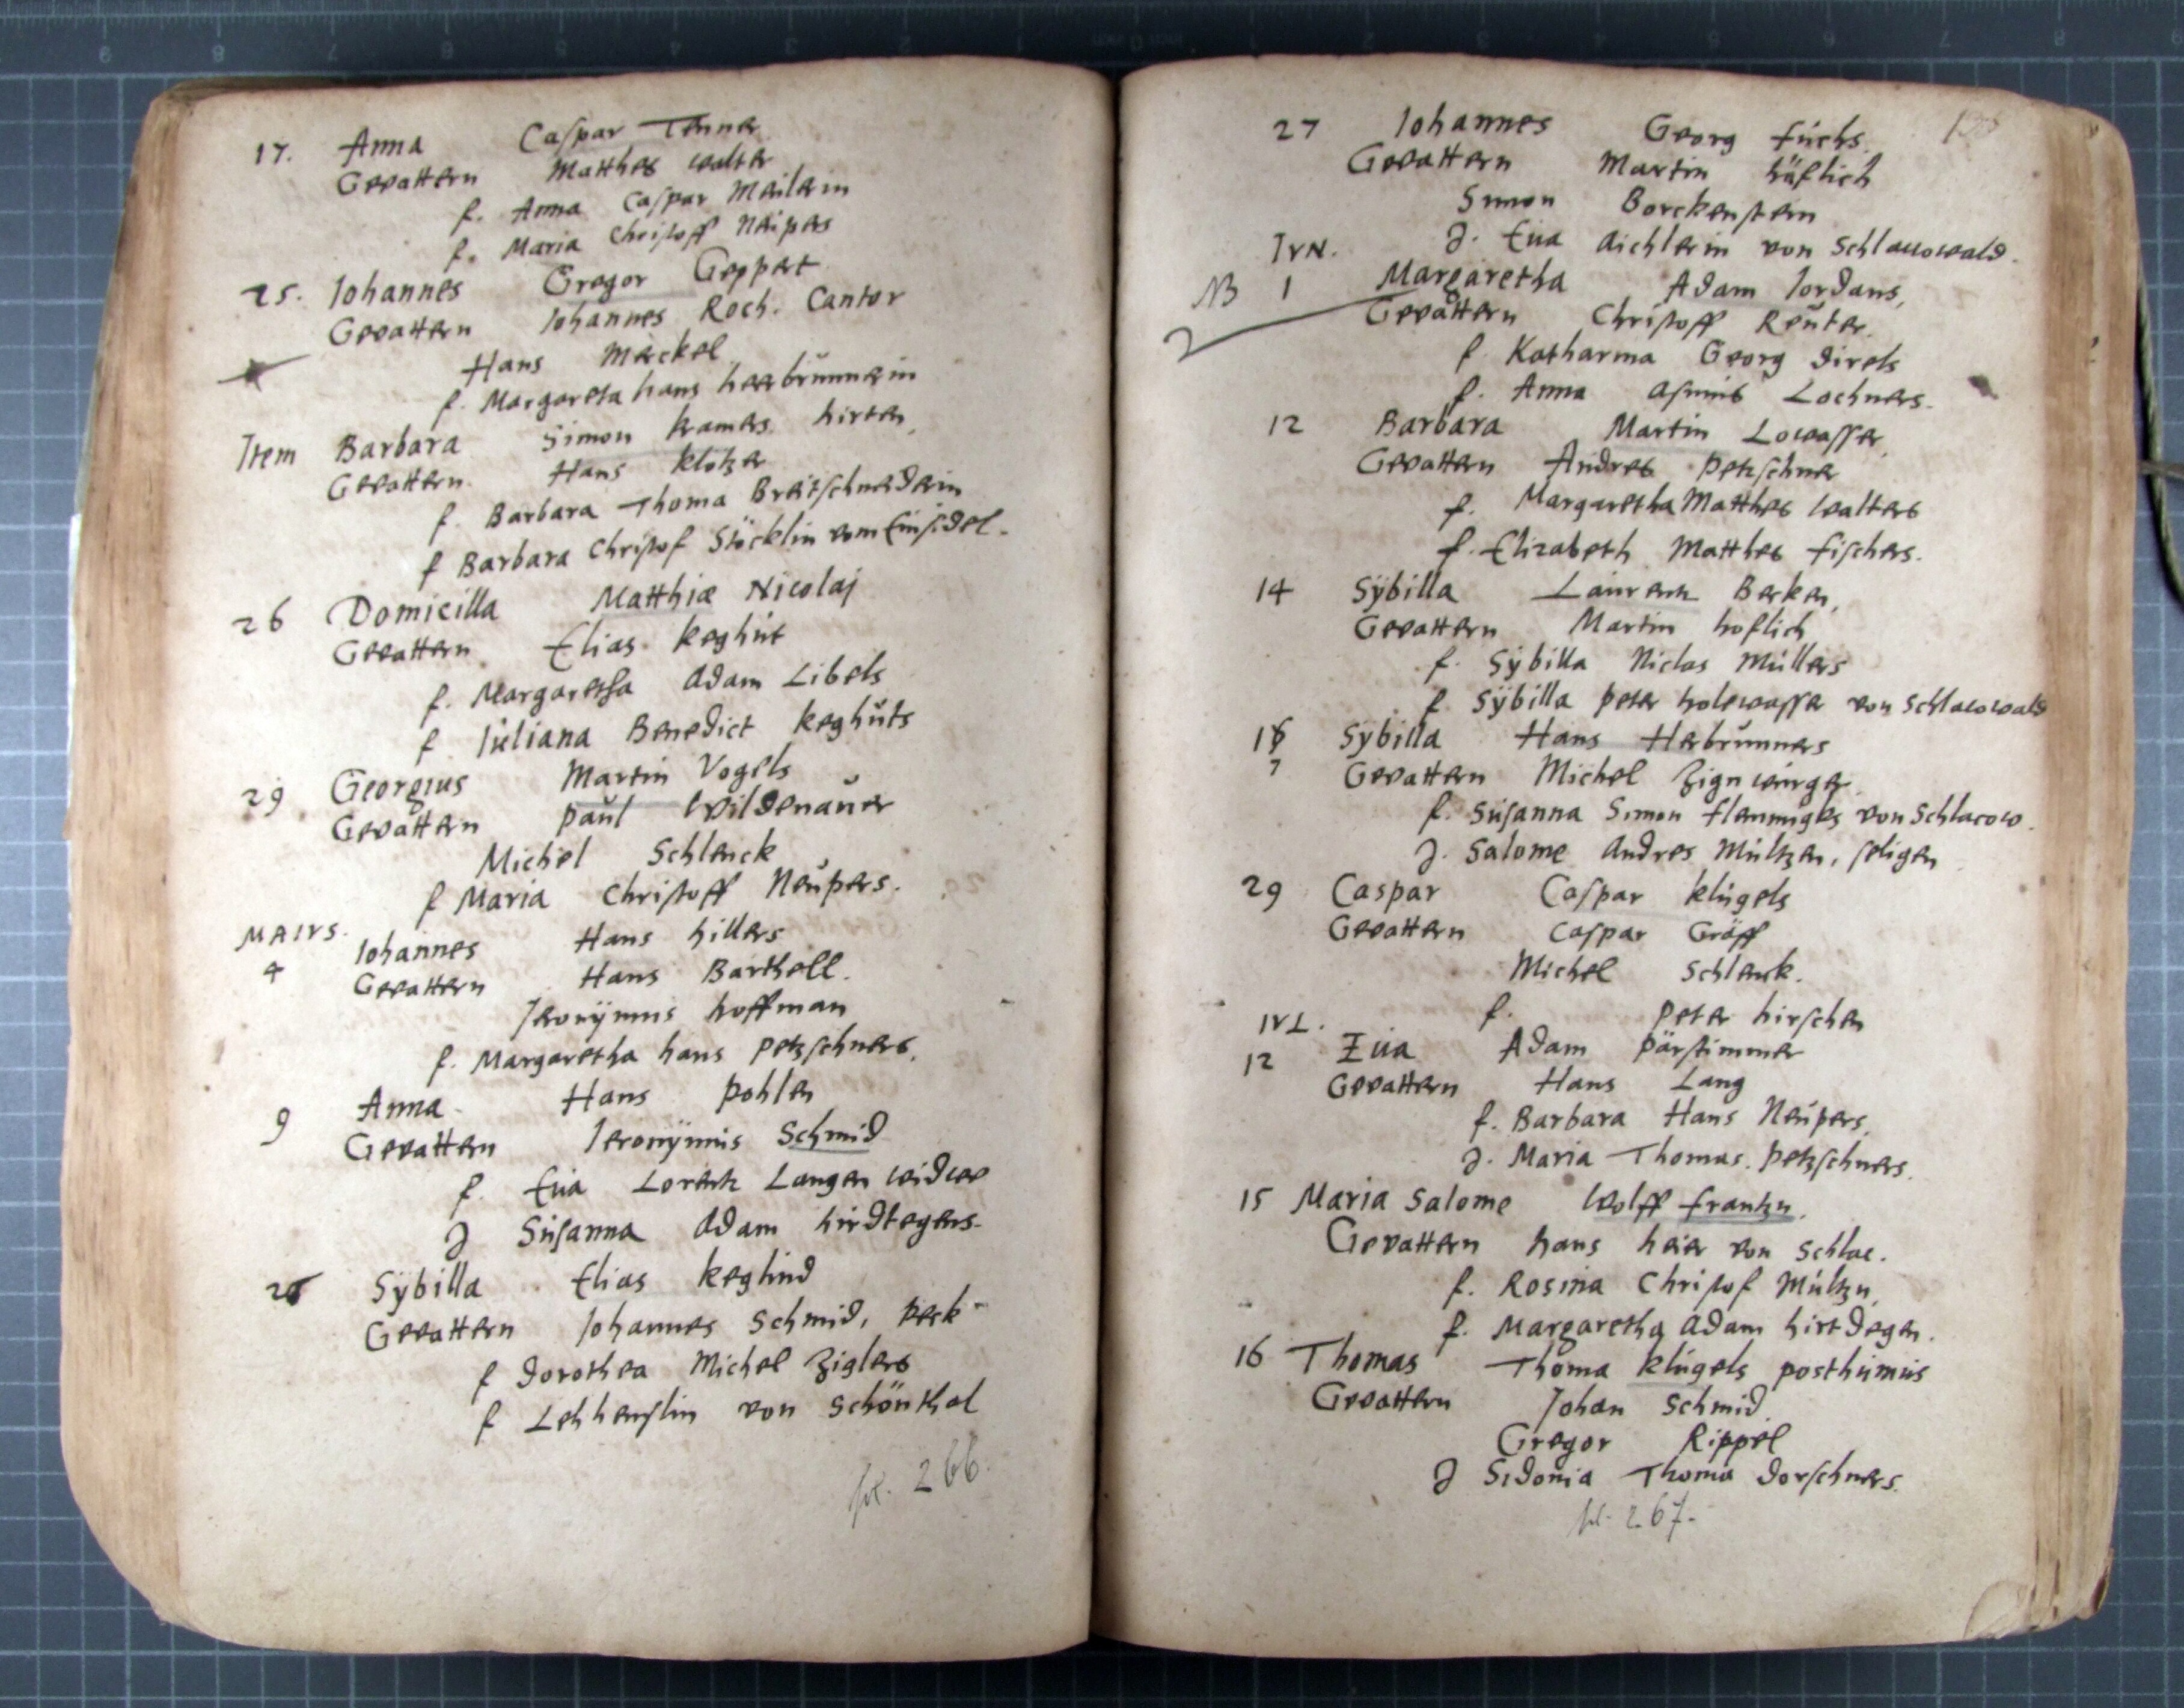 17. Anna Caspar Tenner
Gevattern Matthes Walter
f. Anna Caspar Meilerin
f. Maria Christoff Neipers
25. Iohannes Gregor Geppert
Gevattern Iohannes Roch. Cantor
Hans Merckel
f. Margareta hans heerbrünnerin
Item Barbara Simon kramers hirten
Gevattern Hans klotzer
f. Barbara Thoma Breitschneiderin
f Barbara Christof Stöcklin vom Einsidel.
26 Domicilla Matthiæ Nicolaj
Gevattern Elias keghüt
f. Margaretha Adam Libels
f Iüliana Benedict keghüts
29 Georgius Martin Vogels
Gevattern Paül Wildenaüer
Michel Schlenck
f Maria Christoff Neüpers.
MAIVS.
4 Iohannes Hans hillers
Gevattern Hans Barthell.
Ieronÿmus hoffman
f. Margaretha hans Petzschners.
9 Anna Hans Pohlen
Gevattern Ieronÿmus Schmid
f. Eüa Lorentz Langen widwe
J Süsanna Adam hirdtegens.
Sÿbilla Elias keghüd
Gevattern Iohannes Schmid, Peck
f Dorothea Michel Ziglers
f Lehhenslin von Schönthal
fol. 266.
27 Iohannes Georg füchs.
Gevattern Martin höflich
Simon Borckenstein
J. Eüa Aichlerin von Schlacowald.
IVN.
NB 1 Margaretha Adam Iordans,
Gevattern Christoff Reüter.
f. Katharina Georg Direls
f. Anna Asmus Lochners.
12 Barbara Martin Lowasser
Gevattern Andres Petzschner
f. Margaretha Matthes Walters
f. Elizabeth Matthes fischers.
14 Sÿbilla Laürentz Becken,
Gevattern Martin hoflich
f. Sÿbilla Niclas Müllers
f. Sÿbilla Peter holewasser von Schlacowald
Sÿbilla Hans Herbrünners
7 Gevattern Michel Zignwürger
f. Süsanna Simon flemmigks von Schlacow.
J. Salome Andres Mültzen, seligen
29 Caspar Caspar klügels
Gevattern Caspar Gröff
Michel Schlenck.
f. Peter hirschen
IVL.
12 Eüa Adam Pärstimmer
Gevattern Hans Lang
f. Barbara Hans Neüpers,
J. Maria Thomas Petzschners.
15 Maria Salome Wolff frantzn.
Gevattern hans heier von Schlac.
f. Rosina Christof Mültzn,
f. Margaretha Adam hirtdegen.
16 Thomas Thoma klügels posthümüs
Gevattern Johan Schmid
Gregor Rippel
J Sidonia Thoma Dorschners.
fol. 267.